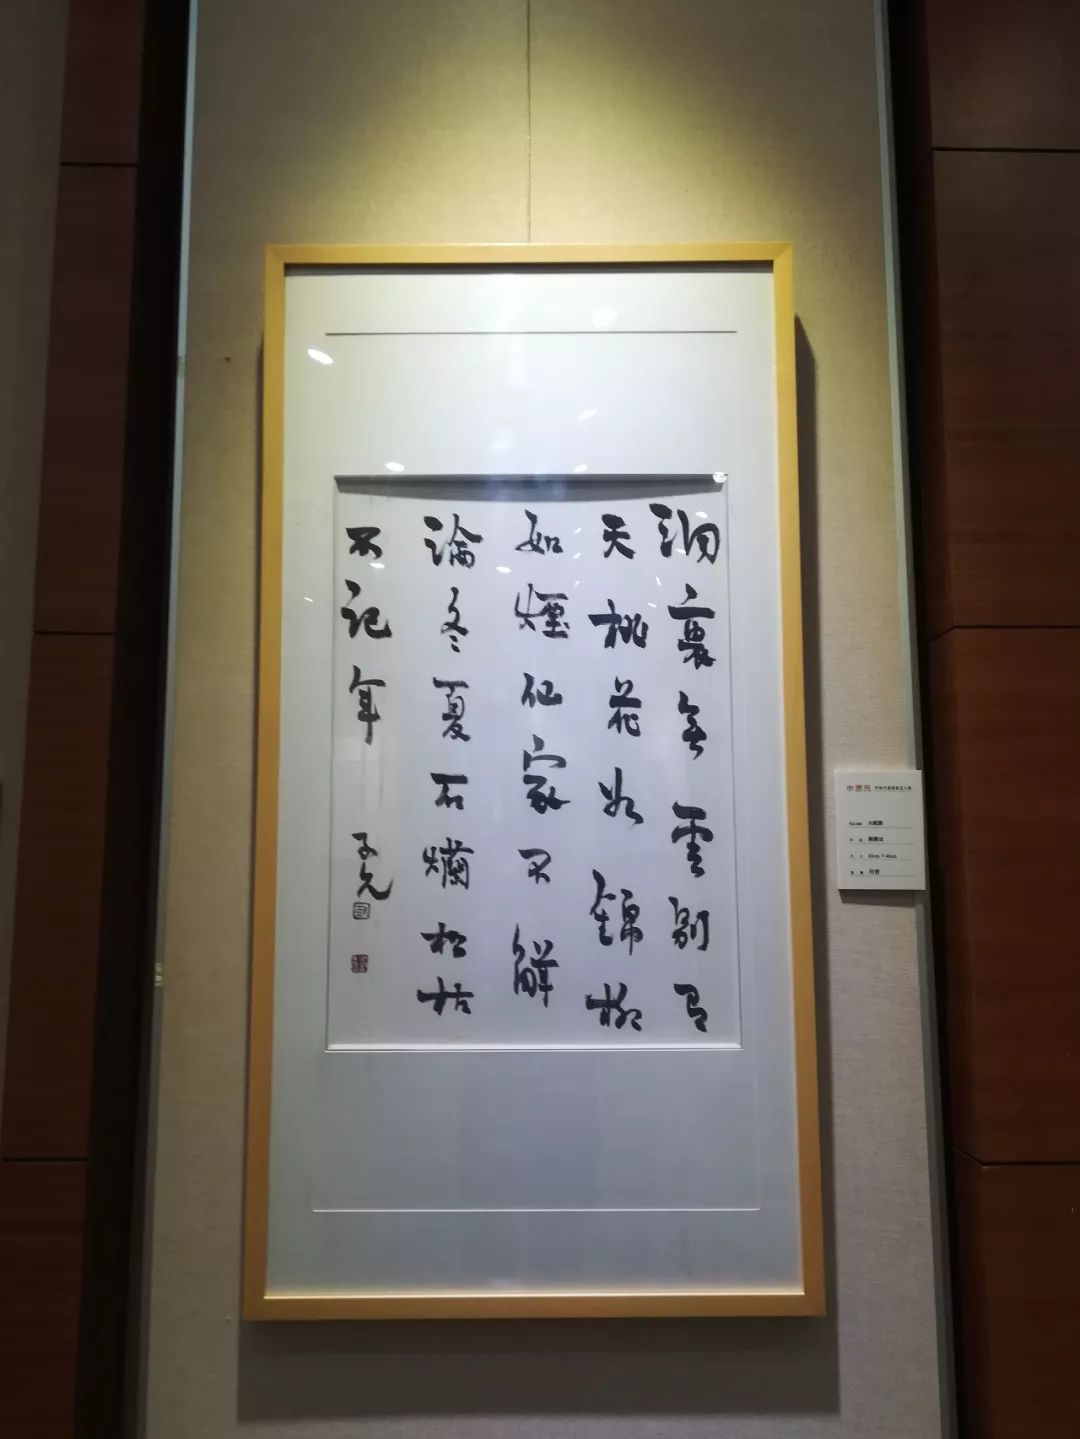 洞裏無雲別有
天桃花如錦柳
如煙仙家不解
論冬夏石爛松枯
不記年
子允